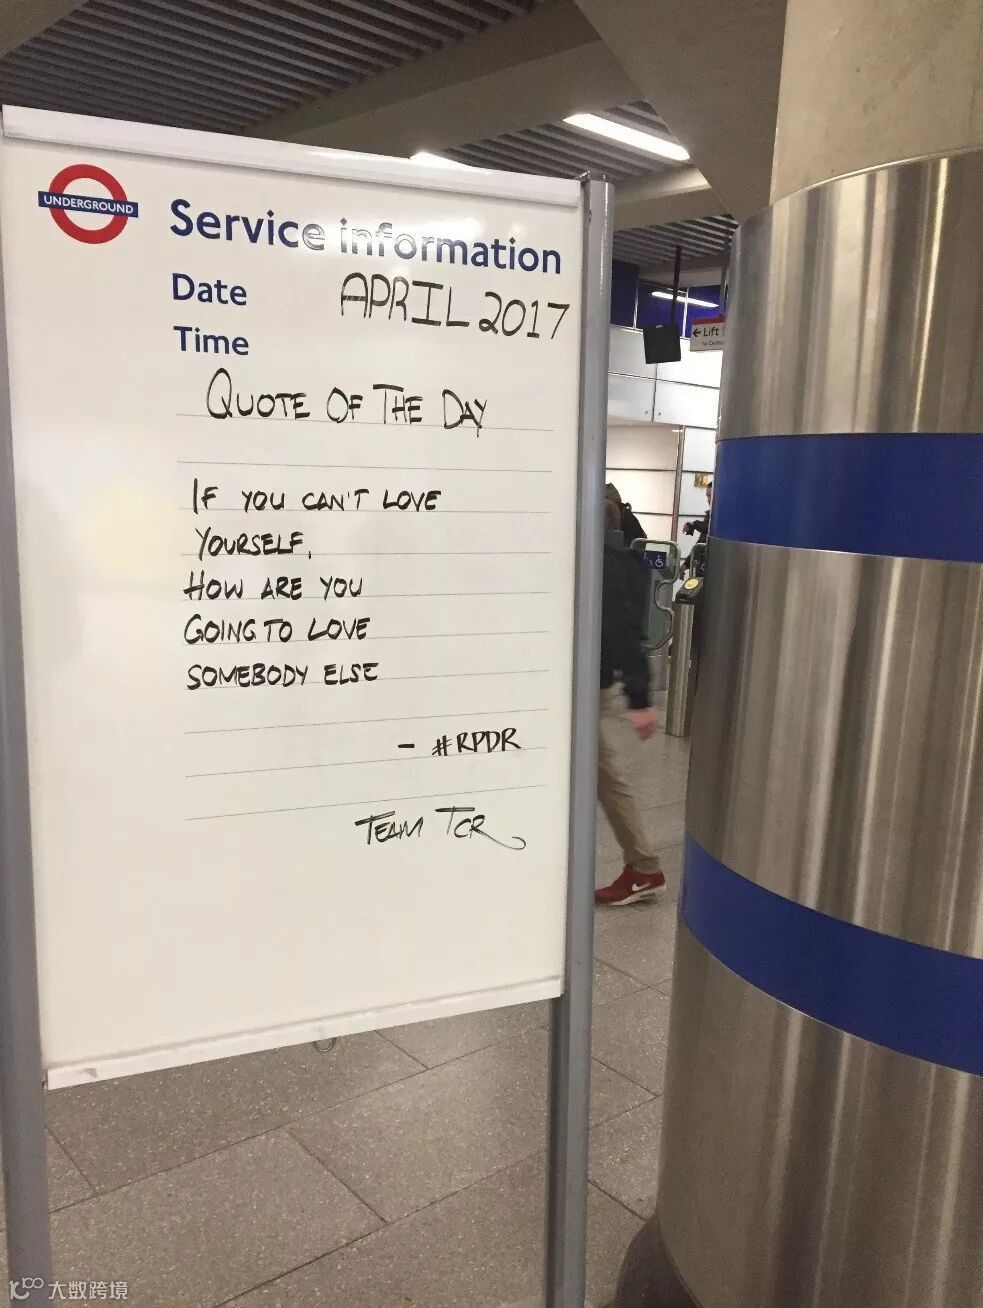 UNDERGROUND
Service information
Date APRIL 2017
Time
QUOTE OF THE DAY
IF YOU CAN'T LOVE
YOURSELF,
HOW ARE YOU
GOING TO LOVE
SOMEBODY ELSE
- #RPDR
TEAM TCR
← Lift
大数跨境